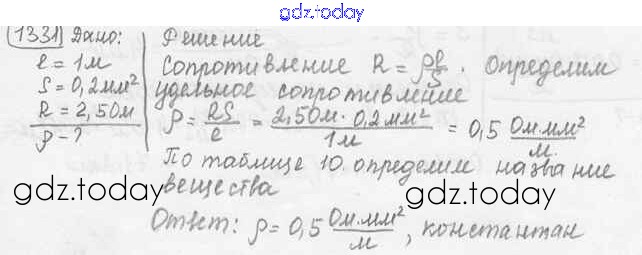 gdz.today
1331 Дано: Решение
ℓ = 1м Сопротивление R = ρℓ/S. Определим
S = 0,2мм² удельное сопротивление
R = 2,5Ом ρ = RS/ℓ = 2,5Ом · 0,2мм²/1м = 0,5 Ом·мм²/м.
ρ - ?
По таблице 10 определим название
вещества
gdz.today gdz.today
Ответ: ρ = 0,5 Ом·мм²/м, константан